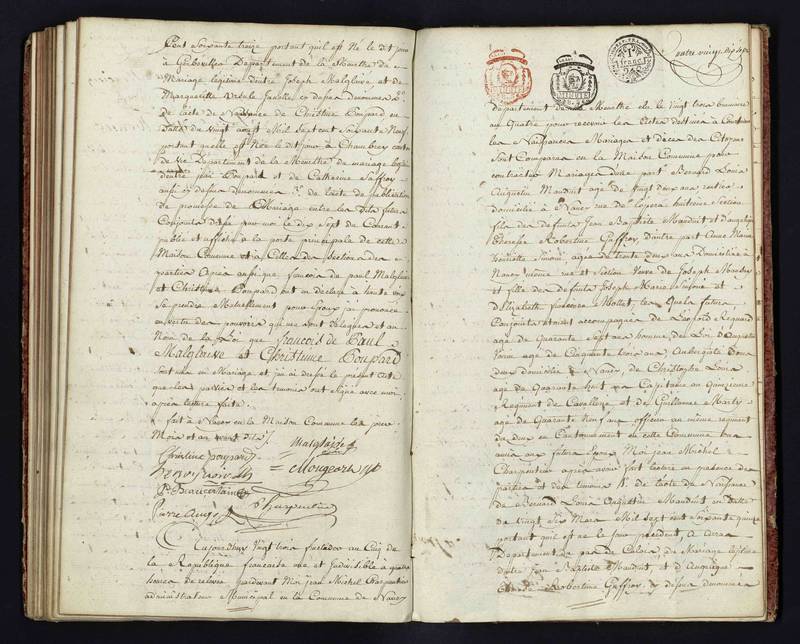 Cent Soixante treize portant quil est Né le dit jour
à Gerbeviller Departement de la Meurthe de
Mariage légitime d'entre Joseph Malglaive et de
Marguerite Ursule
de lacte de Naissance de Christine Poupard en
datte du vingt aoust Mil Sept cent Soixante Neuf
portant quelle est Née le dit jour à Chambrey canton
de Vic Departement de la Meurthe de mariage
d'entre Poupard et de Catherine
aussi cy dessus denommés 3°. de lacte de publication
de promesse de Mariage entre les dits futurs
Conjoints dressé par moi le dix Sept du Courant
publié et affiché à la porte principale de cette
Maison Commune et à Celles des Sections des
parties Après aussi que francois de paul Malglaive
et Christine Poupard ont declaré à haute voix
Se prendre Mutuellement pour Epoux j'ai prononcé
en vertu des pouvoirs qui me sont delegués et au
Nom de la Loi que francois de Paul
Malglaive et Christine Poupard
sont unis en Mariage et j'ai dressé le present acte
que les parties et les temoins ont signé avec moi
après lecture faite.
fait à Nancy en la Maison Commune les jour
Mois et an avant dits
Christine poupard Malglaive
Mougeot
Charpentier
Aujourdhuy vingt trois fructidor an Cinq de
la Republique francaise une et indivisible à quatre
heures de relevée pardevant Moi jean Michel Charpentier
administrateur Municipal en la Commune de Nancy
quatre vingt dix sept
Departement de la Meurthe élu le vingt trois brumaire
an Quatre pour recevoir les Actes destinés à Constater
les Naissances Mariages et décès des Citoyens
Sont Comparus en la Maison Commune pour
contracter Mariage dune part Bernard Louis
Augustin Mauduit agé de vingt deux ans rentier
domicilié à Nancy rue de lopera huitieme Section
fils des defunts Jean Baptiste Mauduit et d'angelique
Therese Robertine Gaffroy, d'autre part Anne Marie
agée de trente deux ans Domiciliée à
Nancy même rue et Section Veuve de Joseph
et fille des defunts Joseph Marie et
d'Elizabeth Mollet, les quels futurs
Conjoints étaient accompagnés de Léopold
agé de Quarante Sept ans homme de Loi
agé de Cinquante trois ans Aubergiste tous
deux domiciliés à Nancy, de Christophe Louis
agé de Quarante huit ans Capitaine au Quinzieme
Regiment de Cavallerie et de Guillaume Marly
agé de Quarante Neuf ans officier au même regiment
les deux en Cantonnement en cette Commune tous
amis aux futurs Epoux Moi jean Michel
Charpentier après avoir fait lecture en presence des
parties et des temoins 1°. de lacte de Naissance
de Bernard Louis Augustin Mauduit en datte
du vingt Six Mars Mil Sept cent Soixante quinze
portant quil est né le jour precedent à Arras
Departement du pas de Calais de Mariage légitime
d'entre Jean Baptiste Mauduit et d'Angelique
Therese Robertine Gaffroy, cy dessus denommés